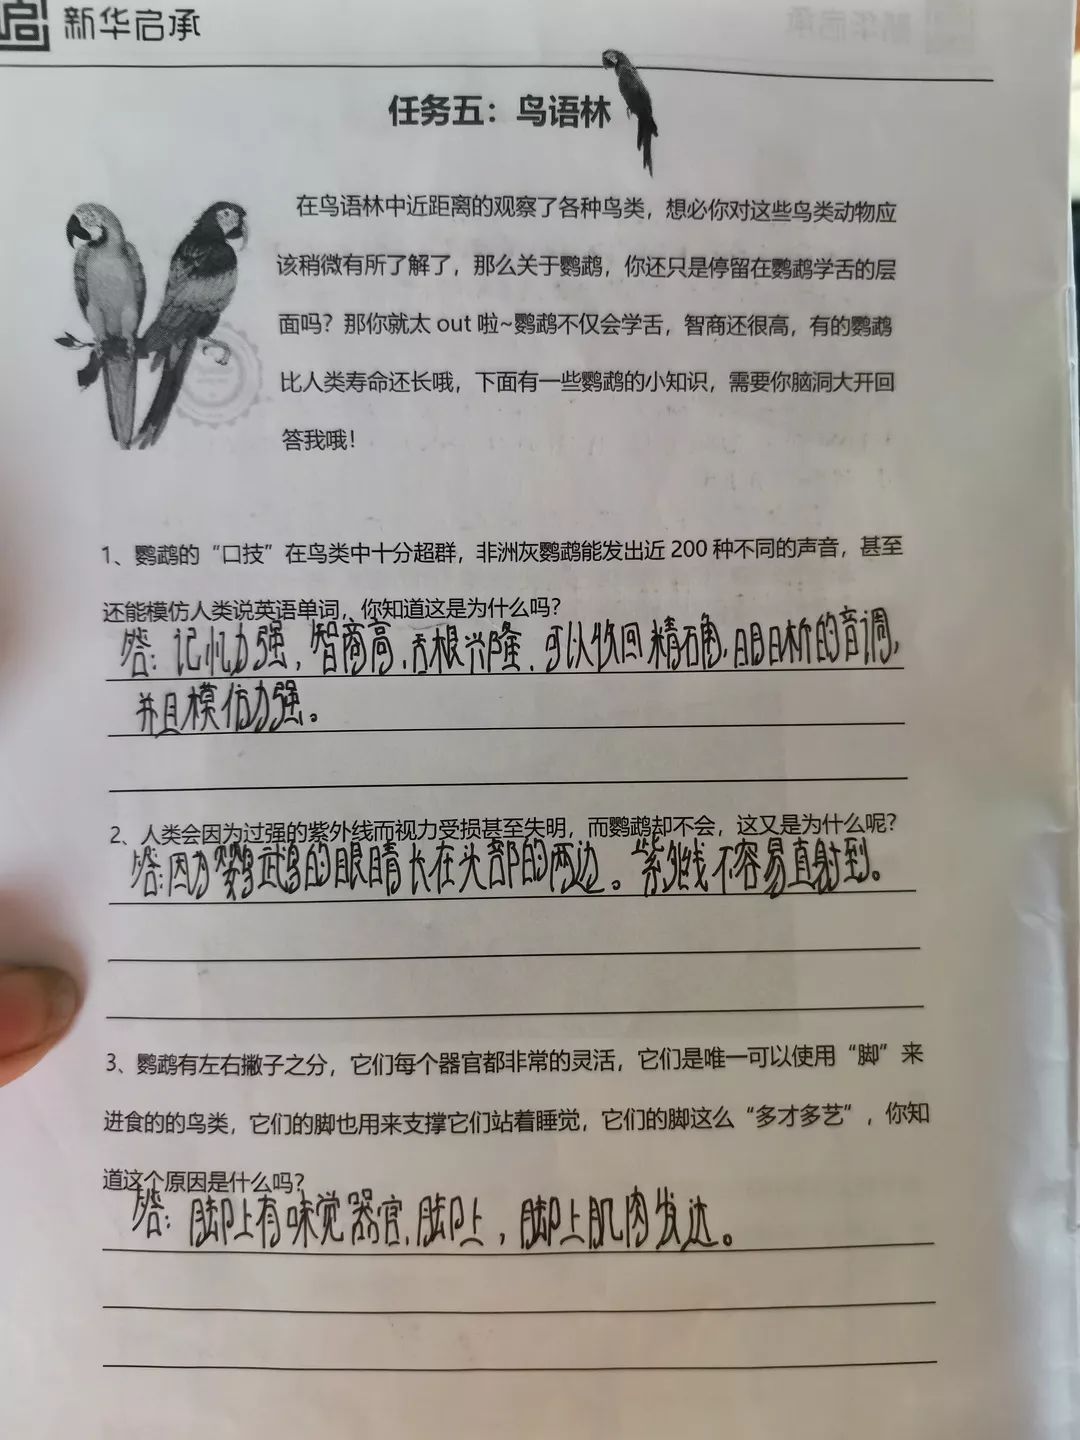 新华启承
任务五：鸟语林
在鸟语林中近距离的观察了各种鸟类，想必你对这些鸟类动物应
该稍微有所了解了，那么关于鹦鹉，你还只是停留在鹦鹉学舌的层
面吗？那你就太 out 啦~鹦鹉不仅会学舌，智商还很高，有的鹦鹉
比人类寿命还长哦，下面有一些鹦鹉的小知识，需要你脑洞大开回
答我哦！
1、鹦鹉的“口技”在鸟类中十分超群，非洲灰鹦鹉能发出近 200 种不同的声音，甚至
还能模仿人类说英语单词，你知道这是为什么吗？
答：记忆力强，智商高，舌根兴隆，可以收回精确，明晰的音调，
并且模仿力强。
2、人类会因为过强的紫外线而视力受损甚至失明，而鹦鹉却不会，这又是为什么呢？
答：因为鹦鹉的眼睛长在头部的两边。紫外线不容易直射到。
3、鹦鹉有左右撇子之分，它们每个器官都非常的灵活，它们是唯一可以使用“脚”来
进食的的鸟类，它们的脚也用来支撑它们站着睡觉，它们的脚这么“多才多艺”，你知
道这个原因是什么吗？
答：脚上有味觉器官，脚上，脚上肌肉发达。